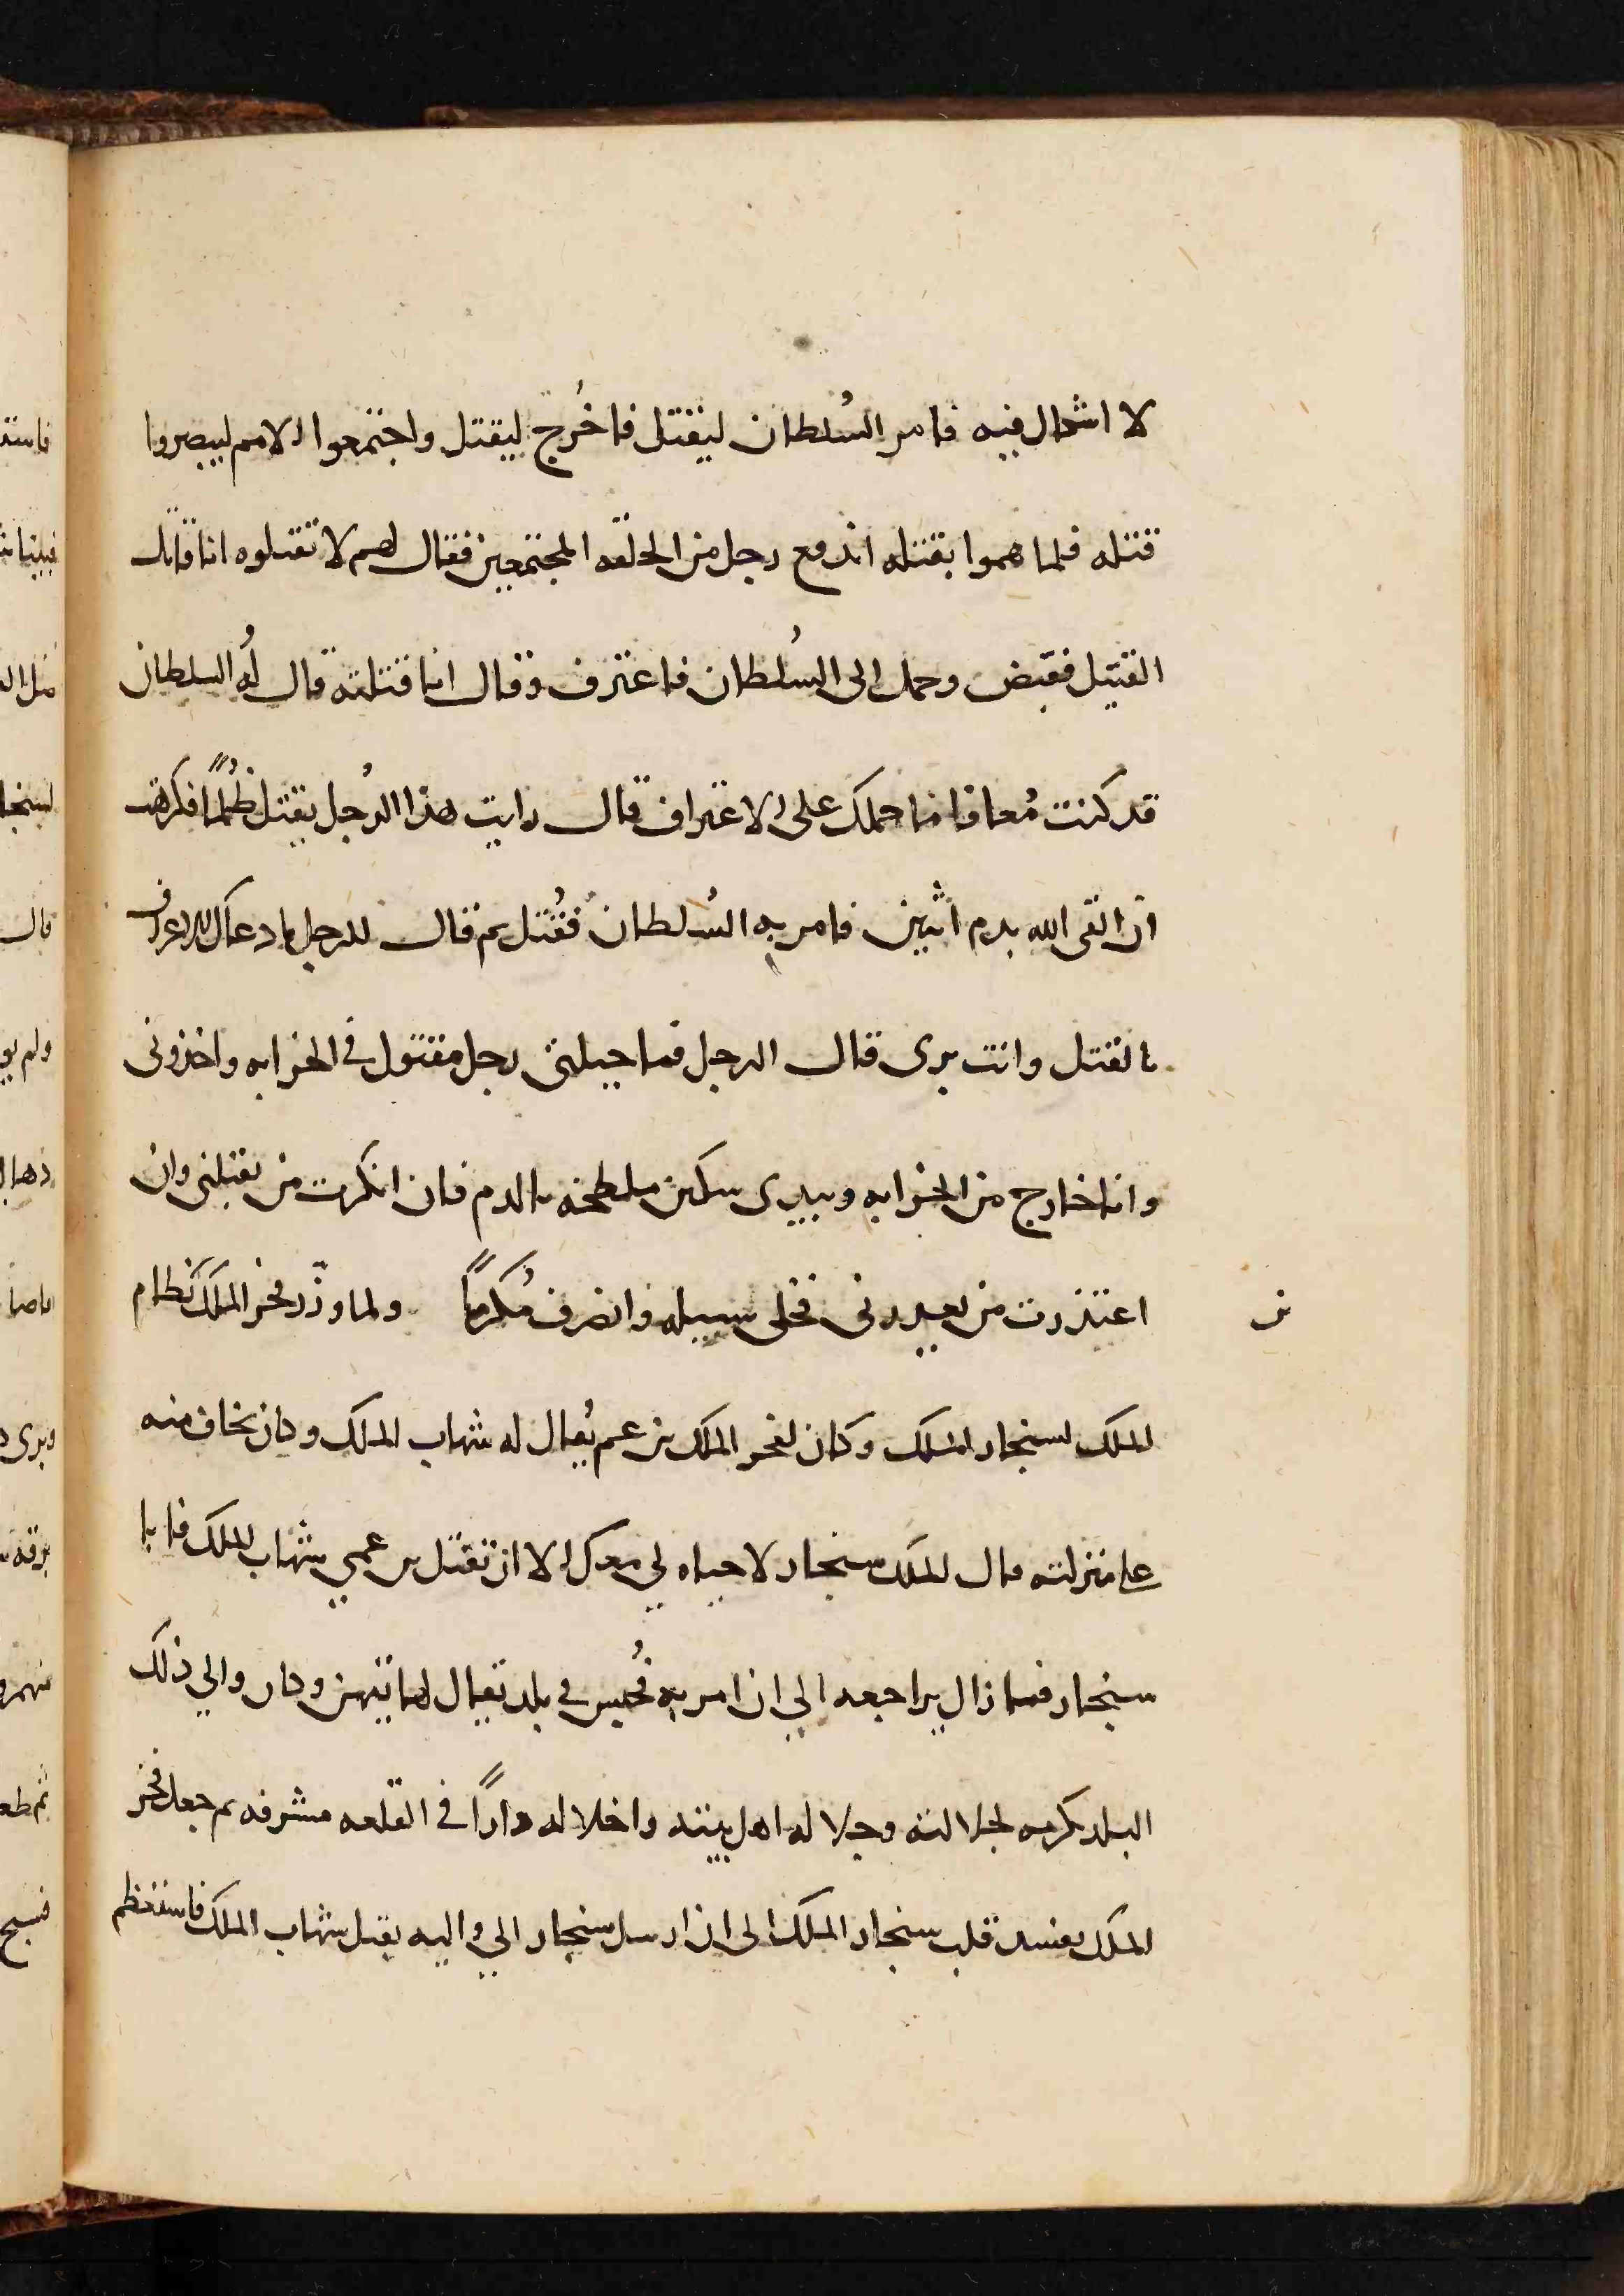 لا اشكال فيه فامر السُلطان ليقتل فاخُرج ليقتل واجتمعوا الامم ليبصروا
قتله فلما هموا بقتله اندفع رجل من الحلقه المجتمعين فقال لهم لا تقتلوه انا قاتل
القتيل فقبض وحمل الى السُلطان فاعترف وقال انا قتلته قال لهُ السلطان
قد كنت مُعافا فما حملك على الاعتراف قال رايت هذا الرُجل يقتل ظُلماً فكرهت
ان القى الله بدم اثنين فامر به السُلطان فقُتل ثم قال للرجل ما دعاك للاعراف
بالقتل وانت برى قال الرجل فما حيلتى رجل مقتول فى الخرابه واخذونى
وانا خارج من الخرابه وبيدى سكين ملطخه بالدم فان انكرت من يقبلنى وان
اعتذرت من يعدرنى فخلى سبيله وانصرف مُكرماً ولما وزّر فخر الملك نظام
الملك لسنجار الملك وكان لفخر الملك بن عم يُقال له شهاب الملك وكان يخاف منه
على منزلته قال للملك سنجار لا حياه لي معك الا ان تقتل بن عمي شهاب الملك فابا
سنجار فما زال يراجعه الي ان امر به فحُبس في بلد يقال لها ترمز وكان والي ذلك
البلد يكرمه لجلالته وجلا له اهل بيته واخلا له داراً فى القلعه مشرفه ثم جعل فخر
الملك يفسد قلب سنجار الملك الى ان ارسل سنجار الي واليه بقتل شهاب الملك فاستعظم